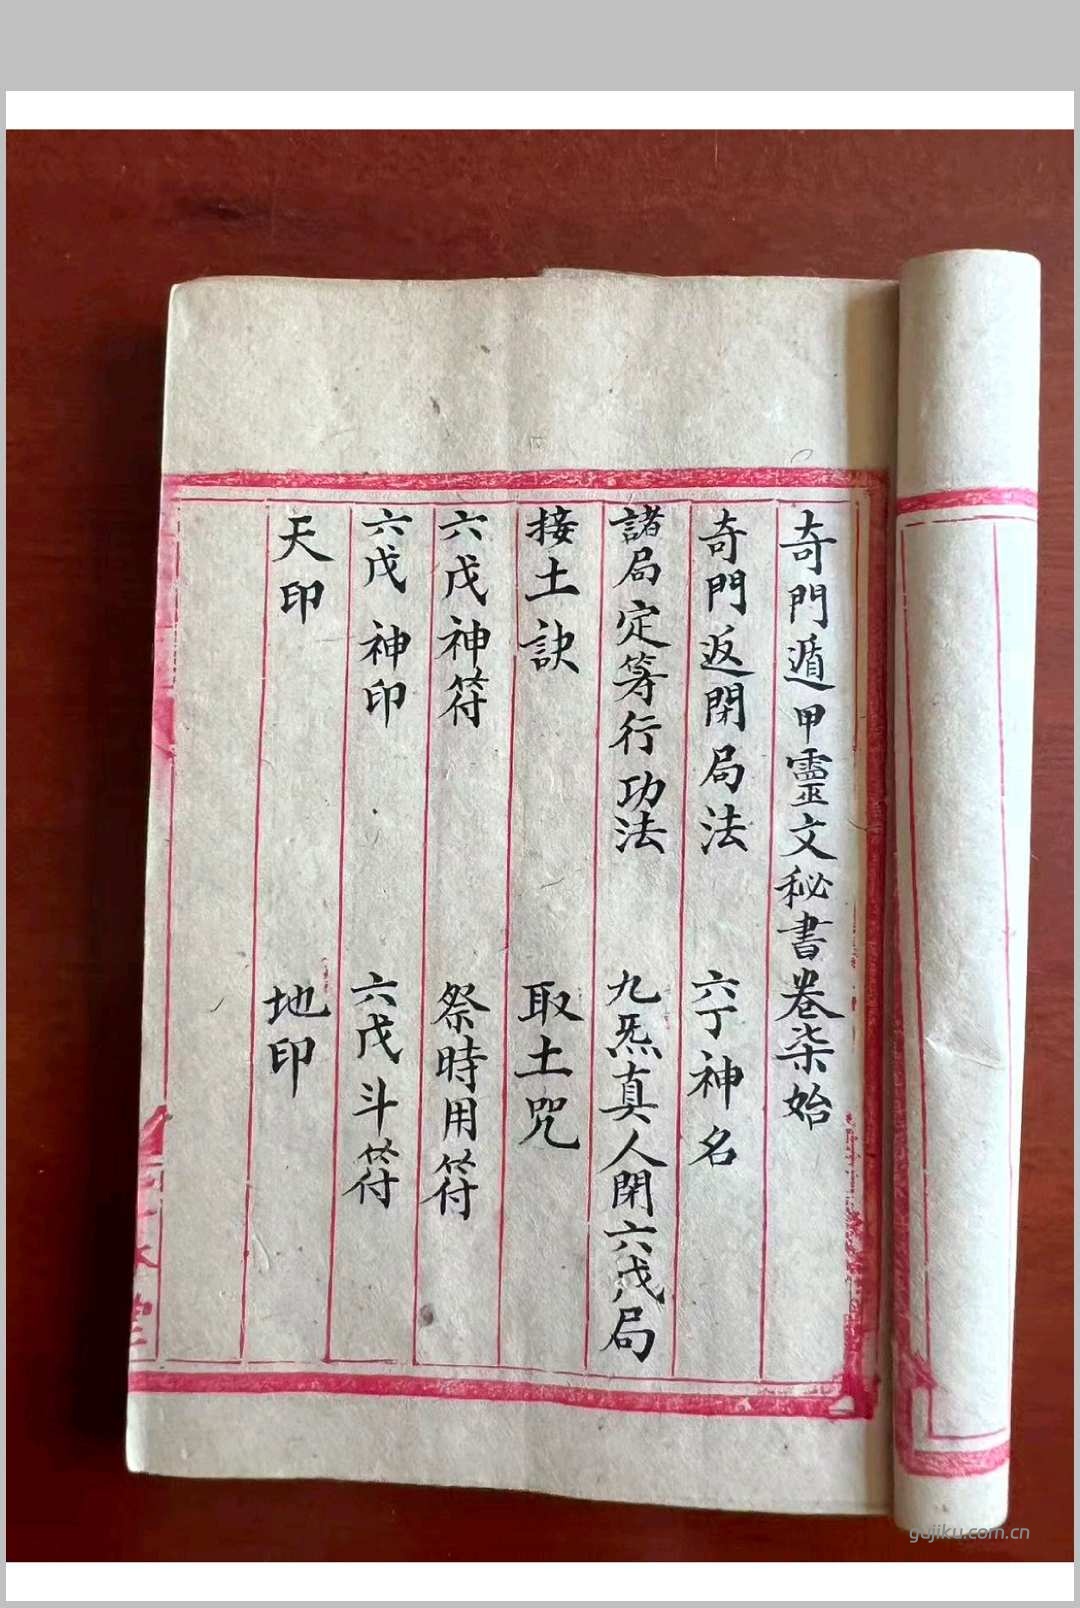 奇門遁甲靈文秘書卷柒始
奇門返閉局法　六丁神名
諸局定筭行功法　九炁真人閉六戊局
接土訣　取土咒
六戊神符　祭時用符
六戊神印　六戊斗符
天印　地印
gujiku.com.cn